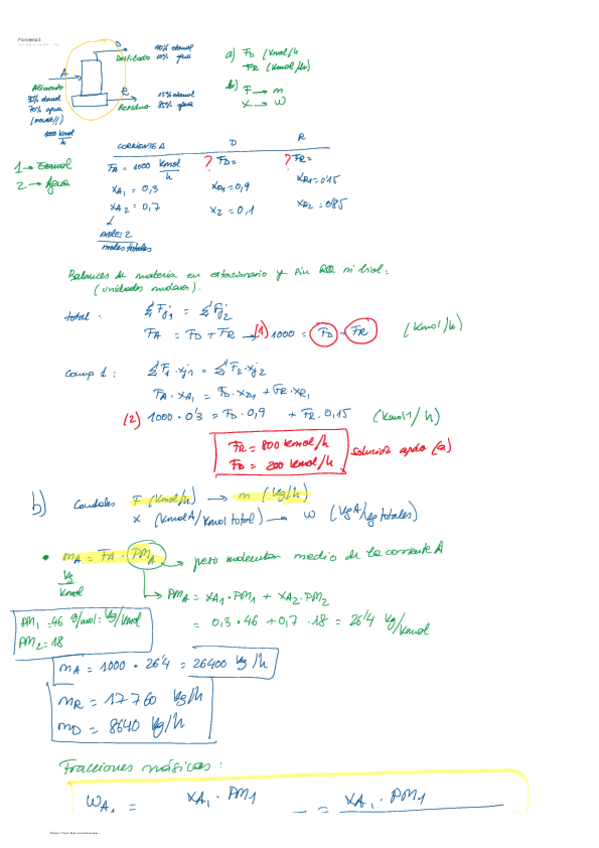 Problema 3
D 90% etanol
Destilado 10% agua
A
Alimento
30% etanol
70% agua
(molar)
1000 Kmol/h
R 15% etanol
Residuo 85% agua
a) FD (Kmol/h
FR (Kmol/h)
b) F → m
X → W
1 → Etanol
2 → Agua
CORRIENTE A D R
FA = 1000 Kmol/h ? FD = ? FR =
XA1 = 0,3 XD1 = 0,9 XR1 = 0'15
XA2 = 0,7 X2 = 0,1 XR2 = 0'85
moles 2
moles totales
Balances de materia en estacionario y sin RQ ni biol:
(unidades molares).
total: Σ Fj1 = Σ Fj2
FA = FD + FR → (1) 1000 = FD + FR (Kmol/h)
Comp 1: Σ F1 · xj1 = Σ F2 · xj2
FA · XA1 = FD · XD1 + FR · XR1
(2) 1000 · 0'3 = FD · 0,9 + FR · 0,15 (Kmol1/h)
FR = 800 kmol/h
FD = 200 kmol/h
Solución apdo (a)
b) Caudales F (Kmol/h) → m (Kg/h)
X (KmolA/Kmol total) → W (KgA/Kg totales)
• mA = FA · PMA → peso molecular medio de la corriente A
Kg
Kmol
PMA = XA1 · PM1 + XA2 · PM2
PM1 = 46 g/mol = Kg/Kmol
PM2 = 18
= 0,3 · 46 + 0,7 · 18 = 26'4 Kg/Kmol
mA = 1000 · 26'4 = 26400 Kg/h
mR = 17760 Kg/h
mD = 8640 Kg/h
Fracciones másicas:
WA1 = XA1 · PM1 = XA1 · PM1